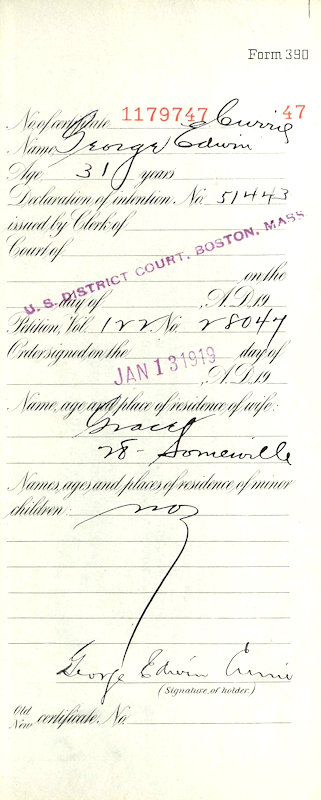 Form 390
47
No. of certificate 1179747
Name George Edwin Currie
Age 31 years
Declaration of intention No. 51443
issued by Clerk of
Court of
U. S. DISTRICT COURT, BOSTON, MASS
on the
day of , A.D. 19
Petition, Vol. 122 No. 28047
Order signed on the day of
JAN 13 1919
, A.D. 19
Name, age and place of residence of wife:
Grace
28 - Somerville
Names, ages and places of residence of minor
children: no
George Edwin Currie
(Signature of holder.)
Old
New certificate. No.